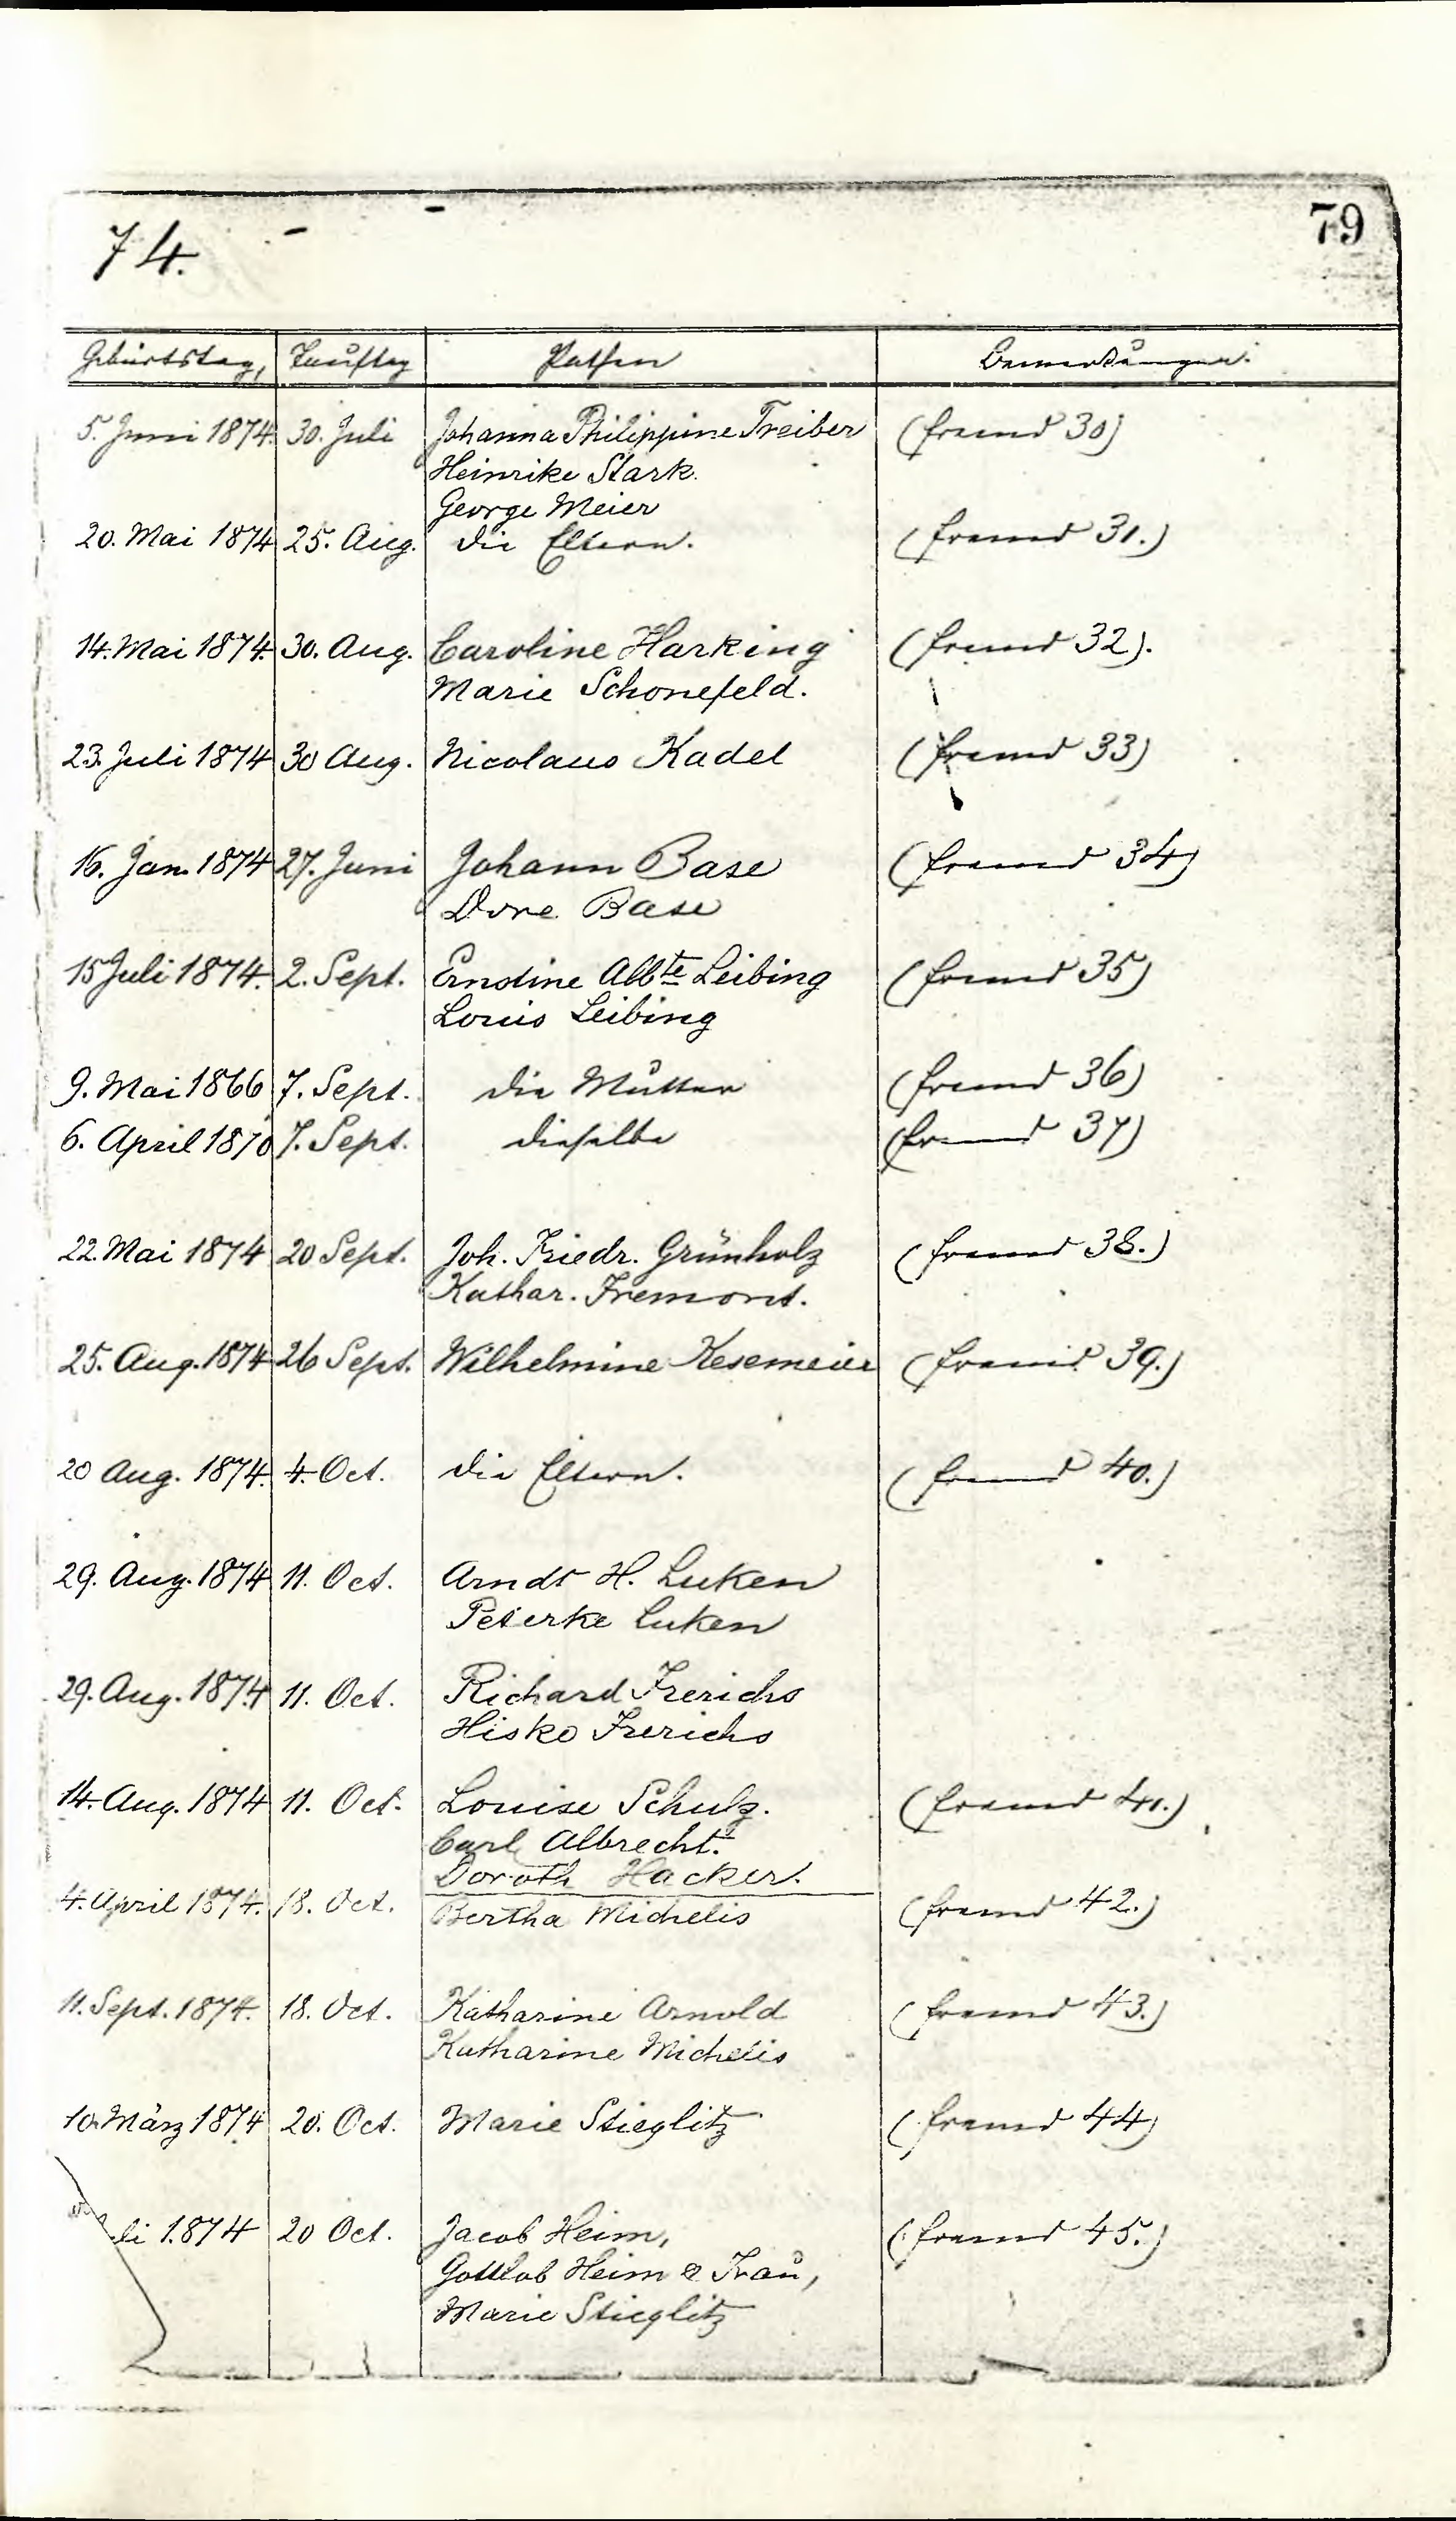 74.
79
Geburtstag, Tauftag Pathen Bemerkungen.
5. Juni 1874. 30. Juli Johanna Philippine Treiber (fremd 30)
Heinrike Stark.
George Meier
20. Mai 1874 25. Aug. die Eltern. (fremd 31.)
14. Mai 1874. 30. Aug. Caroline Harking (fremd 32).
Marie Schonefeld.
23. Juli 1874 30 Aug. Nicolaus Kadel (fremd 33)
16. Jan. 1874 27. Juni Johann Base (fremd 34)
Dore Base
15 Juli 1874. 2. Sept. Erndtine Albte Leibing (fremd 35)
Louis Leibing
9. Mai 1866 7. Sept. die Mutter (fremd 36)
6. April 1870 7. Sept. dieselbe (fremd 37)
22. Mai 1874 20 Sept. Joh. Friedr. Grünholz (fremd 38.)
Kathar. Fremont.
25. Aug. 1874 26 Sept. Wilhelmine Kesemeier (fremd 39.)
20 Aug. 1874. 4. Oct. die Eltern. (fremd 40.)
29. Aug. 1874 11. Oct. Arndt H. Luken
Peterke Luken
29. Aug. 1874 11. Oct. Richard Frerichs
Hisko Frerichs
14. Aug. 1874 11. Oct. Louise Schulz. (fremd 41.)
Carl Albrecht.
Doroth Hacker.
4. April 1874. 18. Oct. Bertha Michelis (fremd 42.)
11. Sept. 1874. 18. Oct. Katharine Arnold (fremd 43.)
Katharine Michelis
10. März 1874 20. Oct. Marie Stieglitz (fremd 44)
li 1874 20 Oct. Jacob Heim, (fremd 45.)
Gottlob Heim & Frau,
Marie Stieglitz